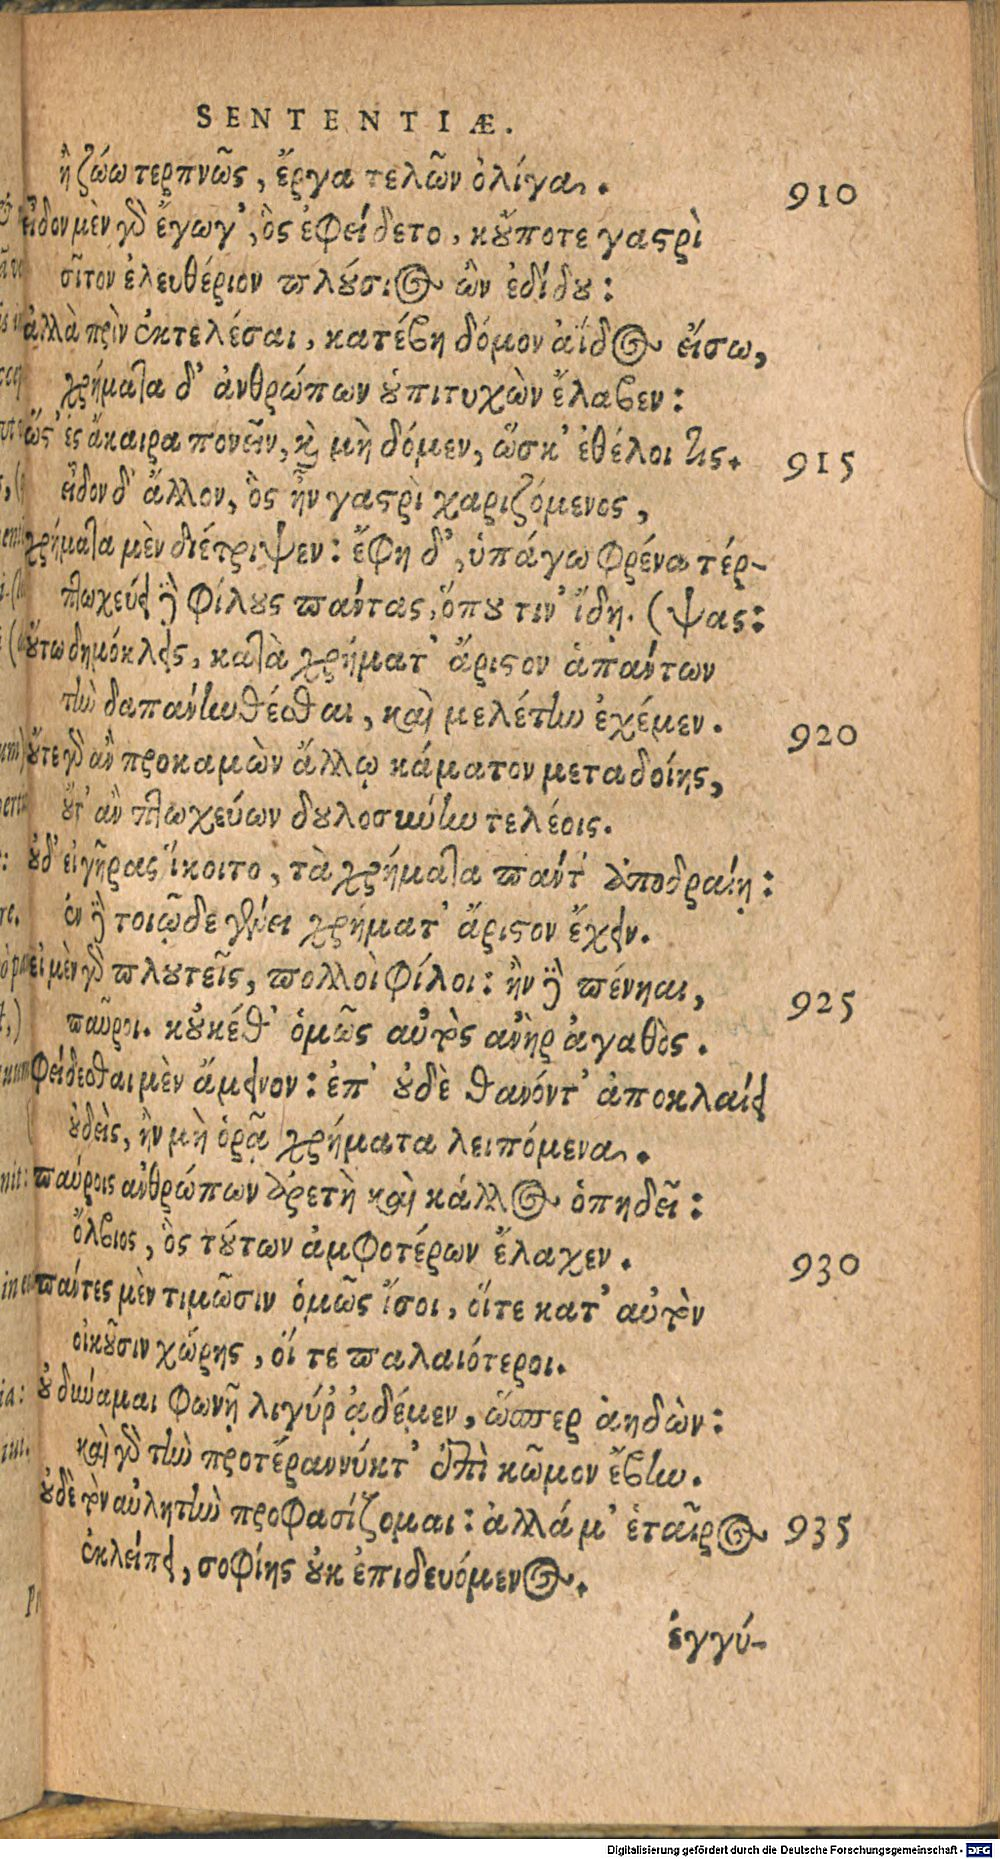 SENTENTIÆ.
ἢ ζώω τερπνῶς, ἔργα τελῶν ὀλίγα. 910
εἶδον μὲν γὸ ἔγωγ', ὃς ἐφείδετο, κȣ̓́ποτε γαϛρὶ
σῖτον ἐλευθέριον πλȣ́σιος ὢν ἐδίδȣ:
ἀλλὰ πρὶν ἐκτελέσαι, κατέβη δόμον ἀΐδος εἴσω,
χρήματα δ' ἀνθρώπων ȣ̔πιτυχὼν ἔλαβεν:
ὥϛ' ἐς ἄκαιρα πονεῖν, καὶ μὴ δόμεν, ὥσκ' ἐθέλοι τις. 915
εἶδον δ' ἄλλον, ὃς ἦν γαϛρὶ χαριζόμενος,
χρήματα μὲν διέτριψεν: ἔφη δ', ὑπάγω φρένα τέρ-
πτωχεύει δὲ φίλȣς πάντας, ὅπȣ τιν' ἴδῃ. (ψας:
ȣ̔́τω δημόκλεις, κατὰ χρήματ' ἄριϛον ἁπάντων
τὴν δαπάνην θέσθαι, καὶ μελέτην ἐχέμεν. 920
ȣ̓́τε γὸ ἂν προκαμὼν ἄλλῳ κάματον μεταδοίης,
ȣ̓́τ' ἂν πτωχεύων δȣλοσύνην τελέοις.
ȣ̓δ' εἰ γῆρας ἵκοιτο, τὰ χρήματα πάντ' ἀποδραίη:
ἐν δὲ τοιῷδε γένει χρήματ' ἄριϛον ἔχειν.
εἰ μὲν γὸ πλȣτεῖς, πολλοὶ φίλοι: ἢν δὲ πένηαι, 925
παῦροι. κȣ̓κέθ' ὁμῶς αὐτὸς ἀνὴρ ἀγαθὸς.
φείδεσθαι μὲν ἄμεινον: ἐπ' ȣ̓δὲ θανόντ' ἀποκλαίει
ȣ̓δεὶς, ἢν μὴ ὁρᾷ χρήματα λειπόμενα.
παύροις ἀνθρώπων ἀρετὴ καὶ κάλλος ὀπηδεῖ:
ὄλβιος, ὃς τȣ́των ἀμφοτέρων ἔλαχεν. 930
πάντες μὲν τιμῶσιν ὁμῶς ἴσοι, οἵτε κατ' αὐτὸν
οἰκȣ͂σιν χώρης, οἵ τε παλαιότεροι.
ȣ̓ δύναμαι φωνῇ λιγύρ' ᾀδέμεν, ὥσπερ ἀηδὼν:
καὶ γὸ τὴν προτέραν νύκτ' ἐπὶ κῶμον ἔβην.
ȣ̓δὲ τὸν αὐλητὴν προφασίζομαι: ἀλλά μ' ἑταῖρος 935
ἐκλείπει, σοφίης ȣ̓κ ἐπιδευόμενος.
ἐγγύ-
Digitalisierung gefördert durch die Deutsche Forschungsgemeinschaft - DFG